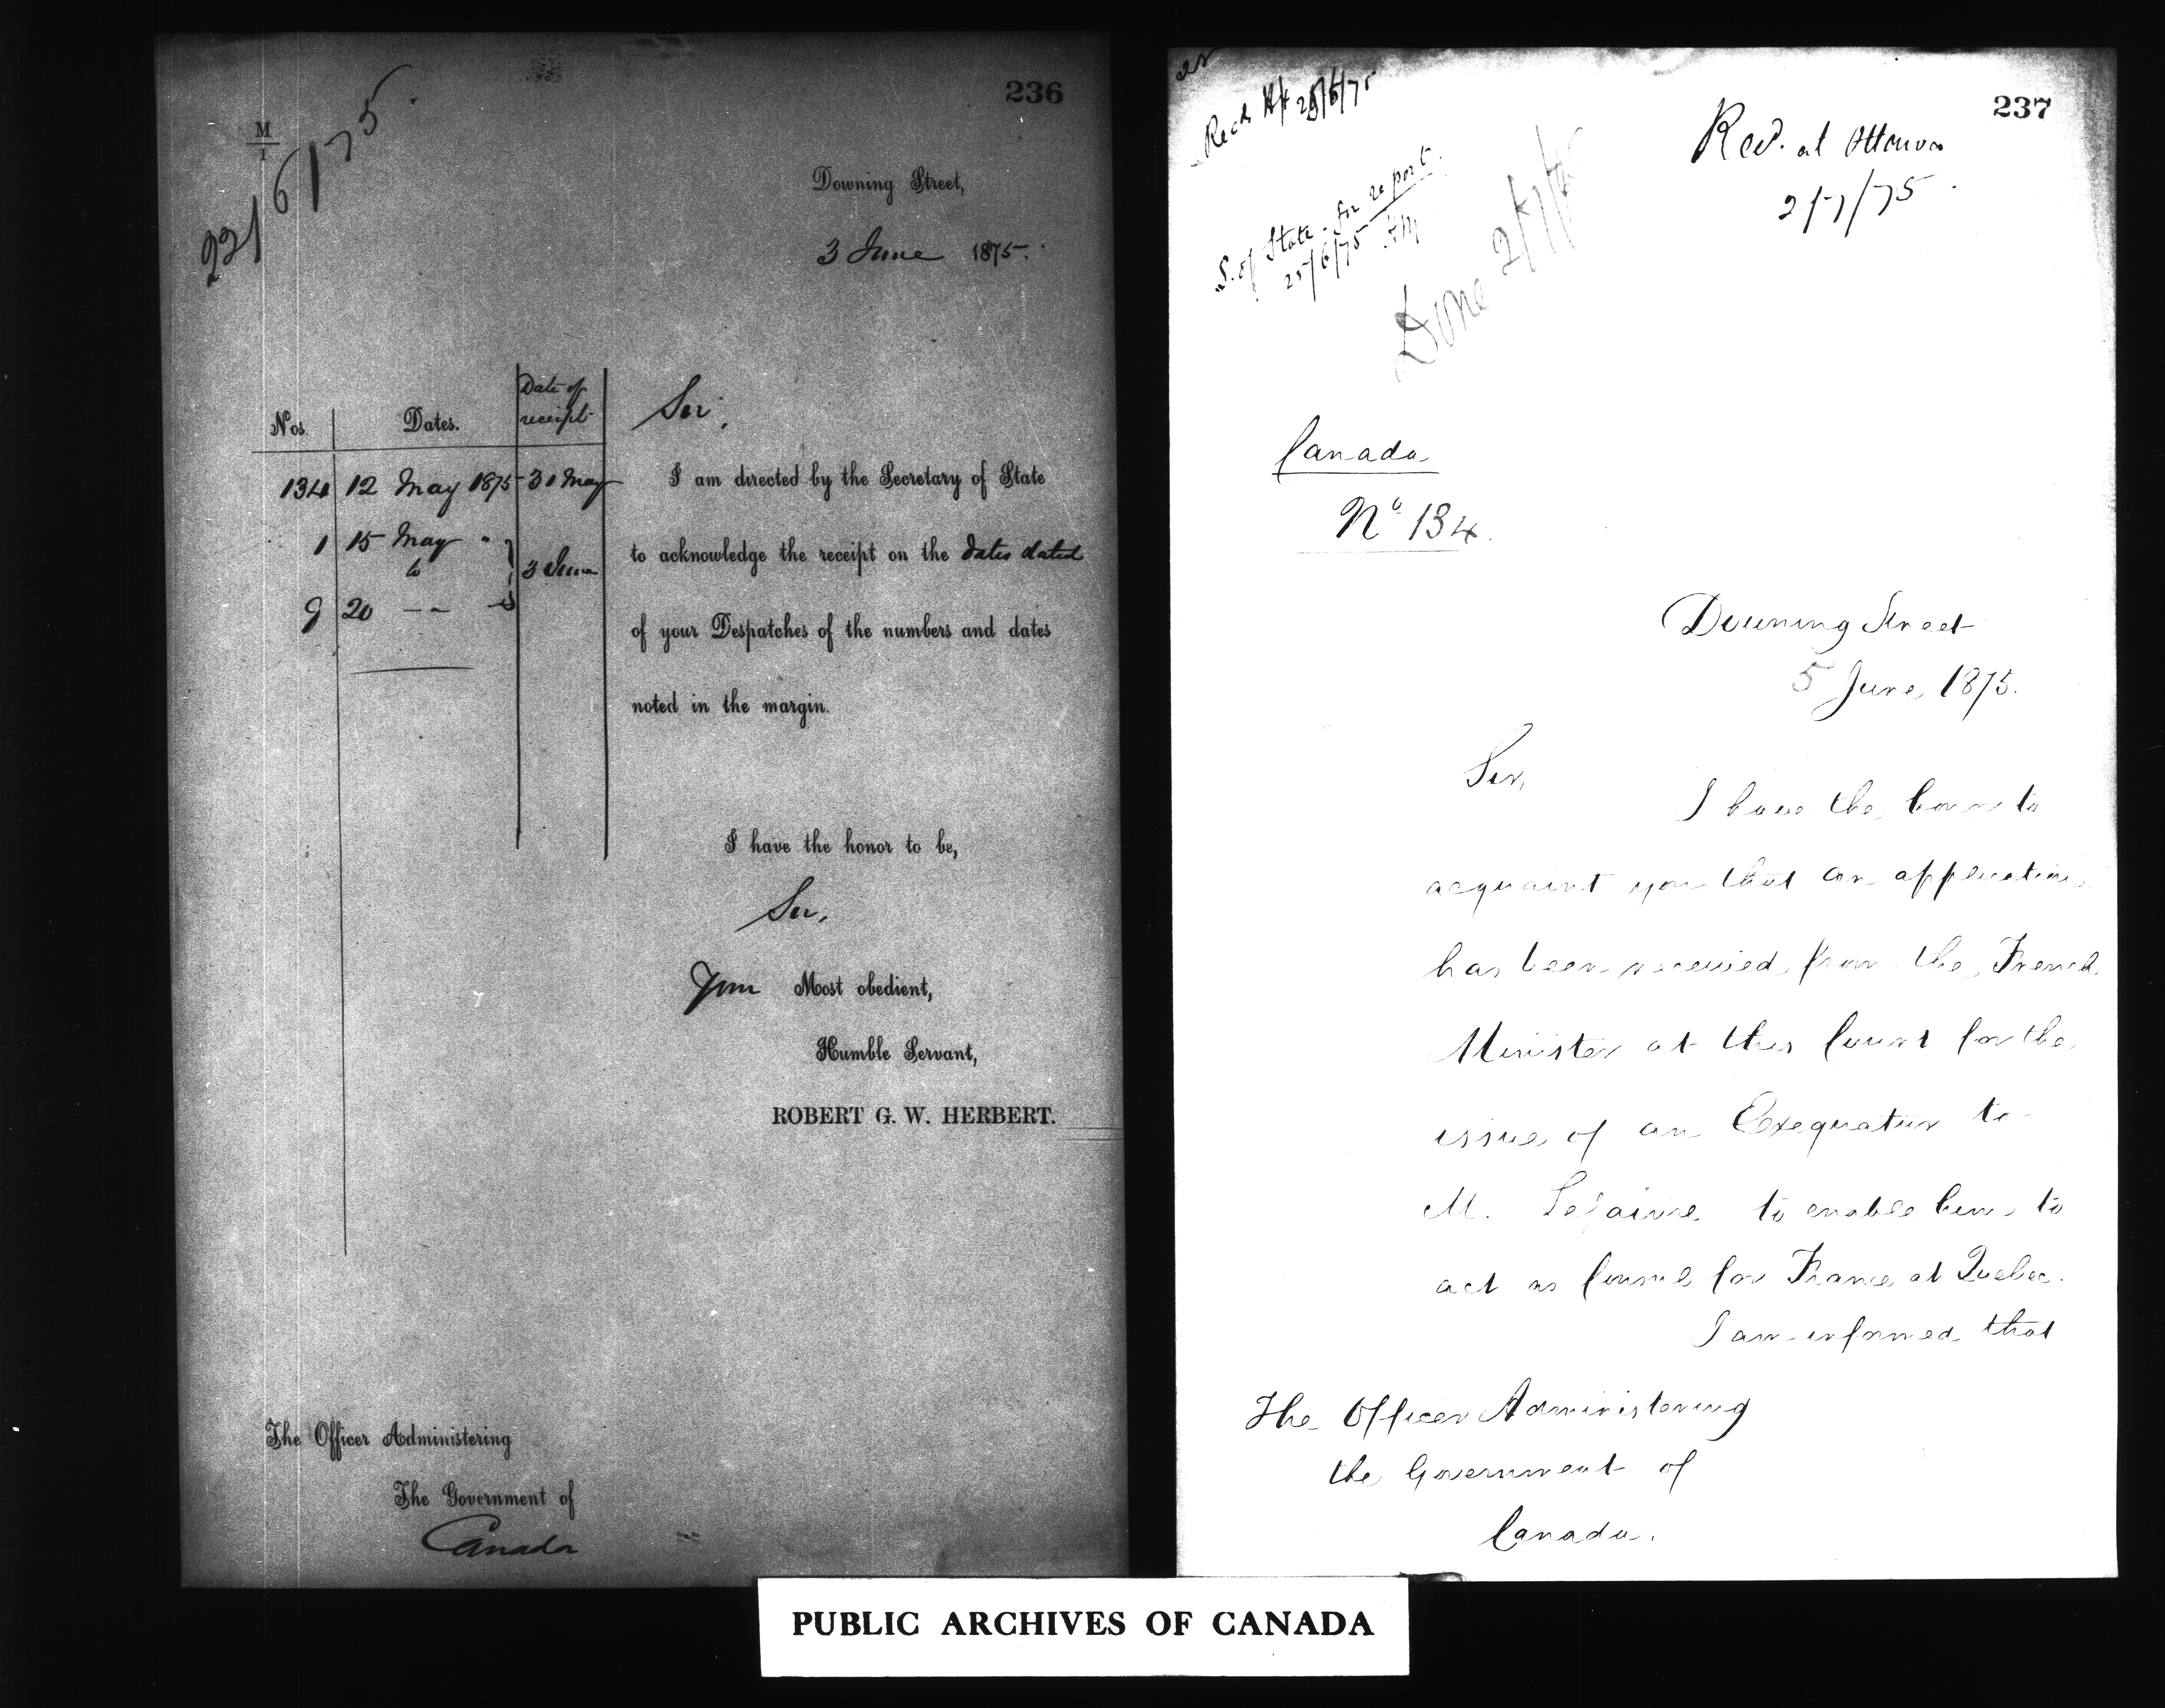 236
M
1
221/6/75.
Downing Street,
3 June 1875.
Nos. Dates. Date of receipt
134 12 May 1875 31 May
1 15 May "
to 3 June
9 20 — "
Sir,
I am directed by the Secretary of State
to acknowledge the receipt on the dates dated
of your Despatches of the numbers and dates
noted in the margin.
I have the honor to be,
Sir,
Your Most obedient,
Humble Servant,
ROBERT G. W. HERBERT.
The Officer Administering
The Government of
Canada
237
Recd. at Ottawa
2/7/75.
S. of State. for report.
25/6/75
Done 2/7/75
Canada
No 134.
Downing Street
5 June, 1875.
Sir,
I have the honor to
acquaint you that an application
has been received from the French
Minister at this Court for the
issue of an Exequatur to
M. Lefaivre to enable him to
act as Consul for France at Quebec.
I am informed that
The Officer Administering
the Government of
Canada.
PUBLIC ARCHIVES OF CANADA